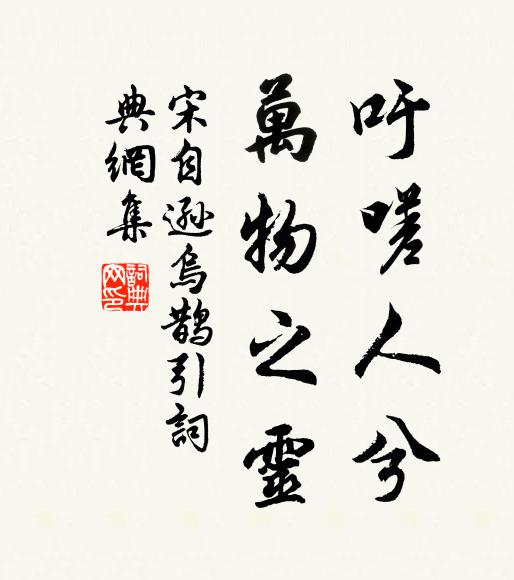 吁嗟人兮
萬物之靈
宋自遜烏鵲引詞
典網集
詞典網印